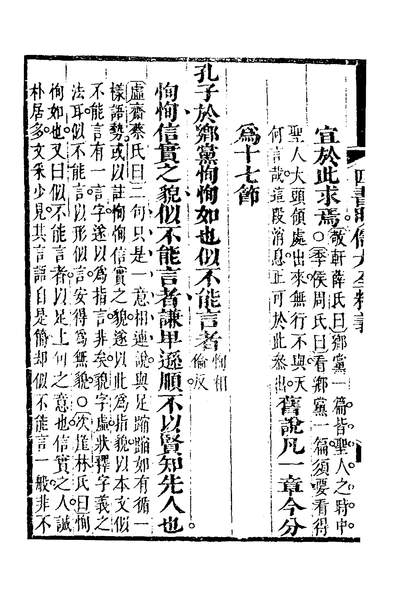 四書明儒大全精義
宜於此求焉○敬軒薛氏曰鄉黨一篇皆聖人之時中
○季侯周氏曰看鄉黨一篇須要看得
聖人大頭領處出來無行不與天
何言哉這段消息正可於此參出
舊說凡一章今分
爲十七節
孔子於鄉黨恂恂如也似不能言者恂相
倫反
恂恂信實之貌似不能言者謙卑遜順不以賢知先人也
虛齋蔡氏曰二句只是一意相連說與足蹜蹜如有循一
樣語勢或以註恂恂信實之貌遂以此為指貌以本文似
不能言有一言字遂以爲指言非矣貌字虛狀釋字義之
法耳似不能言以形言安得爲無貌○次崖林氏曰恂
恂如也又曰似不能言者以足上句之意也信實之人誠
朴居多文采少見其言語自是簡却似不能言一般非不